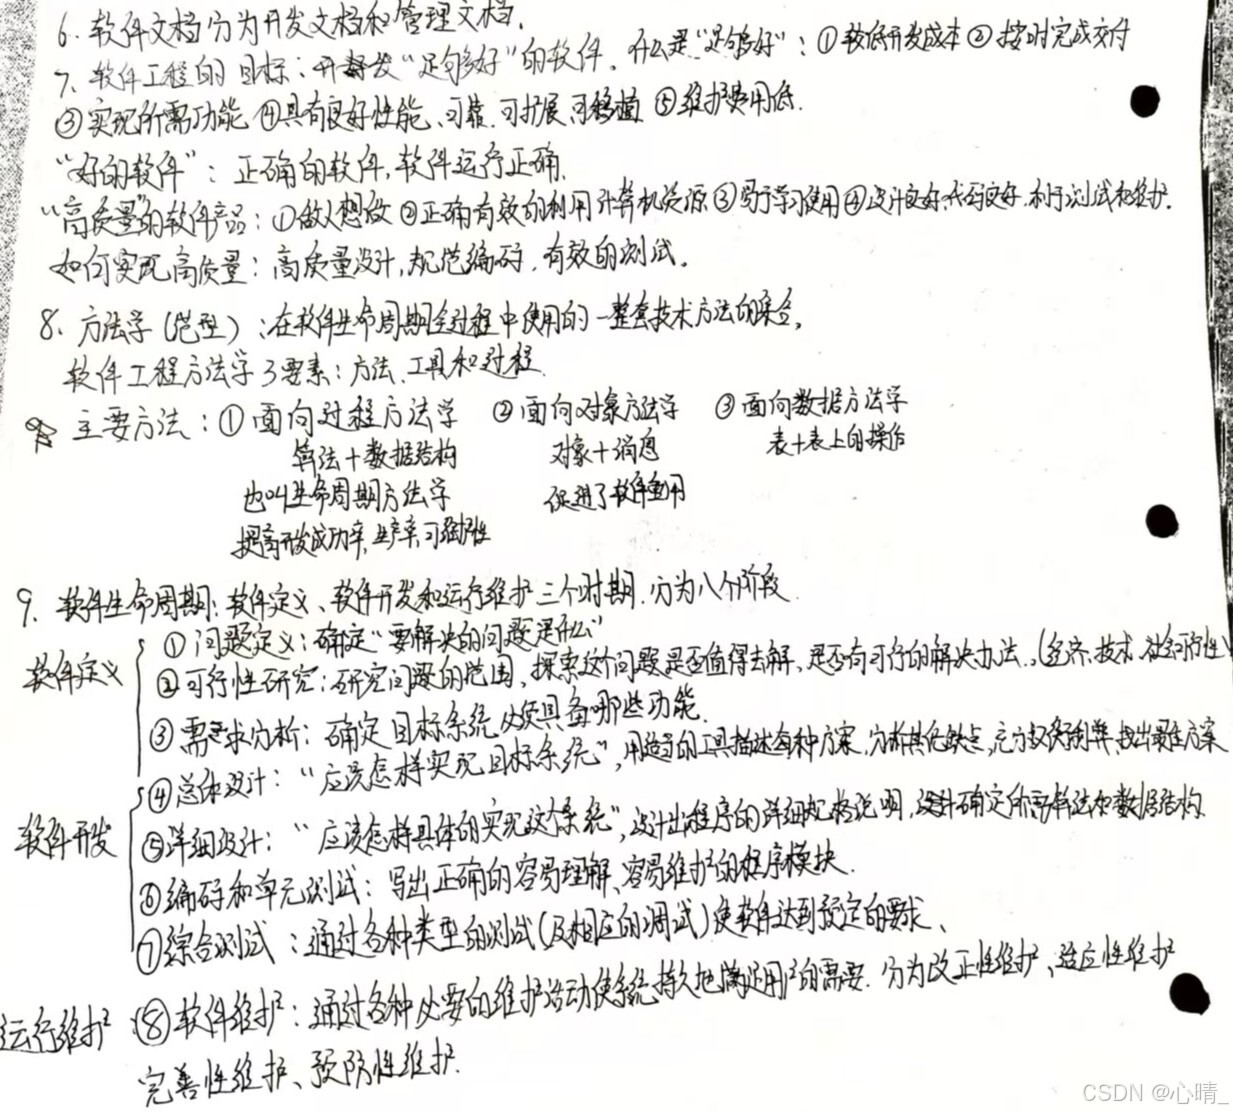 6. 软件文档分为开发文档和管理文档.
7. 软件工程的目标：开发“足够好”的软件. 什么是“足够好”：①较低开发成本②按时完成交付
③实现所需功能 ④具有良好性能、可靠、可扩展、可移植 ⑤维护费用低.
“好的软件”：正确的软件,软件运行正确.
“高质量”的软件产品：①做人想做②正确有效的利用计算机资源③易于学习使用④设计良好,代码良好,利于测试和维护.
如何实现高质量：高质量设计,规范编码,有效的测试.
8. 方法学(范型)：在软件生命周期全过程中使用的一整套技术方法的集合.
软件工程方法学3要素：方法、工具和过程.
主要方法：①面向过程方法学 ②面向对象方法学 ③面向数据方法学
算法+数据结构 对象+消息 表+表上的操作
也叫生命周期方法学 促进了软件重用
提高开发成功率、生产率、可维护性
9. 软件生命周期：软件定义、软件开发和运行维护三个时期.分为八个阶段.
①问题定义：确定“要解决的问题是什么”
软件定义 ②可行性研究：研究问题的范围,探索这个问题是否值得去解,是否有可行的解决办法.(经济、技术、社会可行性)
③需求分析：确定目标系统必须具备哪些功能.
④总体设计：“应该怎样实现目标系统”,用适当的工具描述每种方案,分析其优缺点,充分权衡利弊,找出最佳方案
软件开发 ⑤详细设计：“应该怎样具体的实现这个系统”,设计出程序的详细规格说明,设计确定所需算法和数据结构.
⑥编码和单元测试：写出正确的容易理解、容易维护的程序模块.
⑦综合测试：通过各种类型的测试(及相应的调试)使软件达到预定的要求、
运行维护 ⑧软件维护：通过各种必要的维护活动使系统持久地满足用户的需要. 分为改正性维护、适应性维护
完善性维护、预防性维护.
CSDN @心晴_